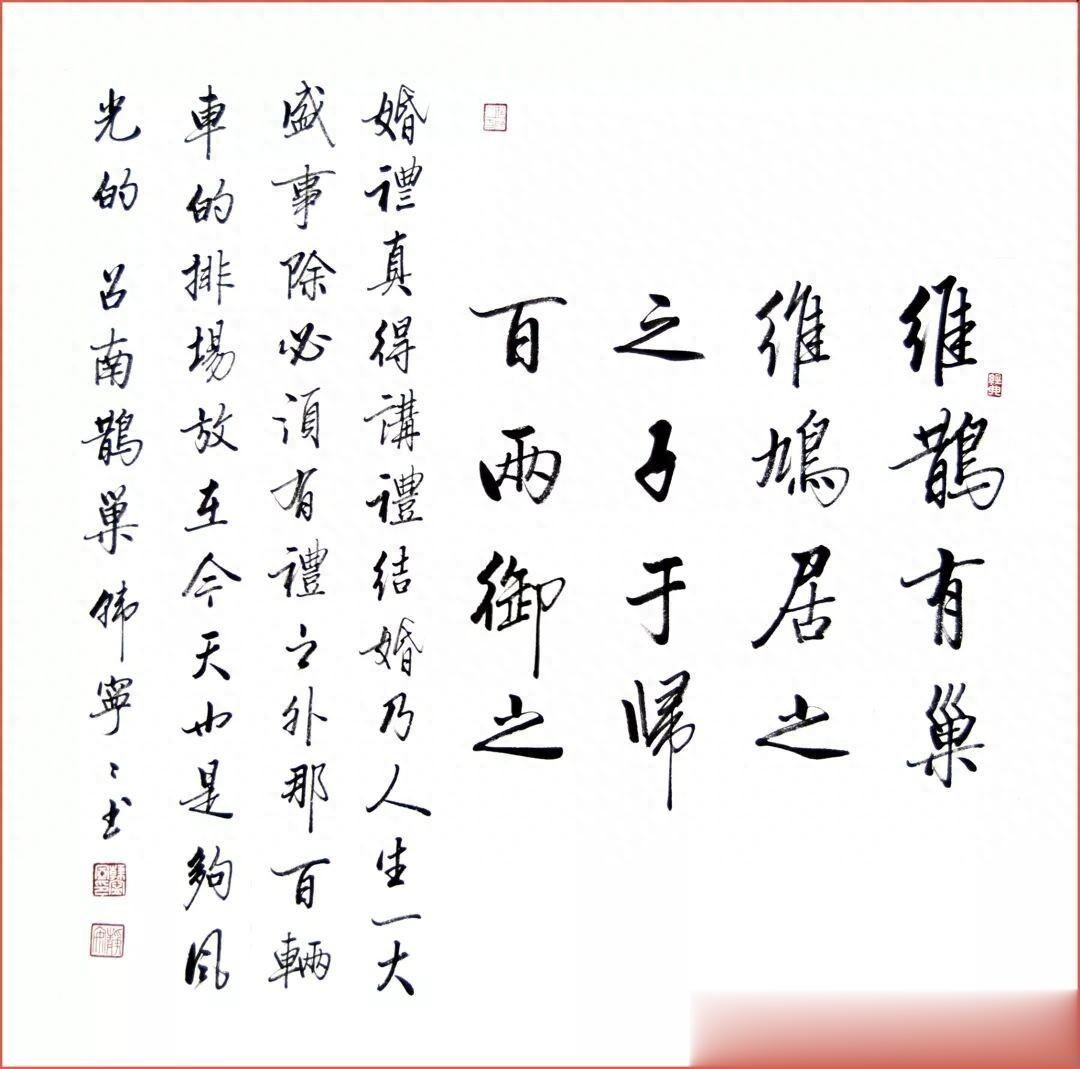 維鵲有巢
維鳩居之
之子于歸
百兩御之
婚禮真得講禮結婚乃人生一大
盛事除必須有禮之外那百輛
車的排場放在今天也是夠風
光的 召南鵲巢 韩寧寧书
經典